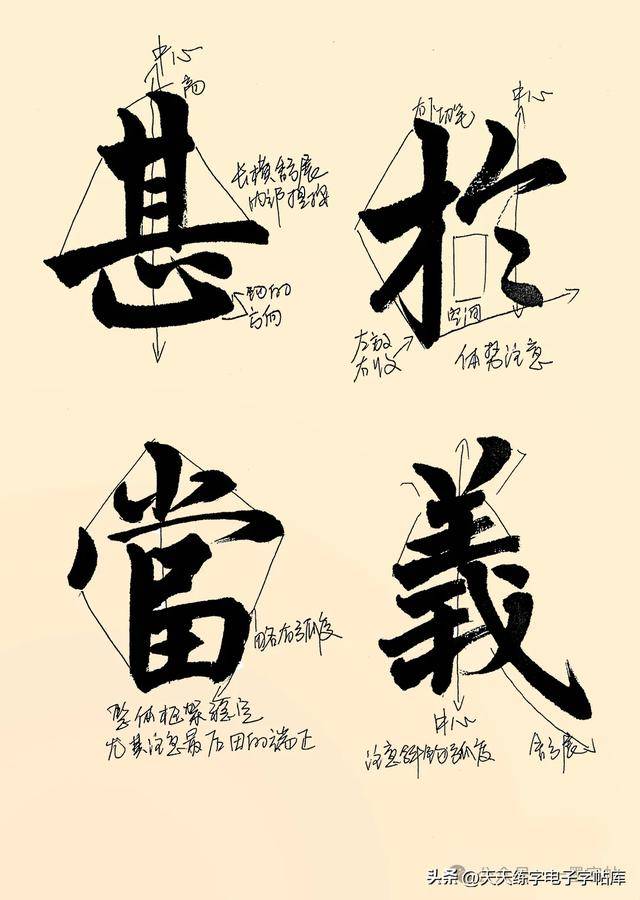 中心
高
甚
长横舒展
内部
方向
中心
右下切笔
於
空间
左放
右收
体势注意
當
略右弧度
整体框架稳定
尤其注意最后田的端正
義
中心
注意斜钩弧度
舒展
头条 @天天练字电子字帖库